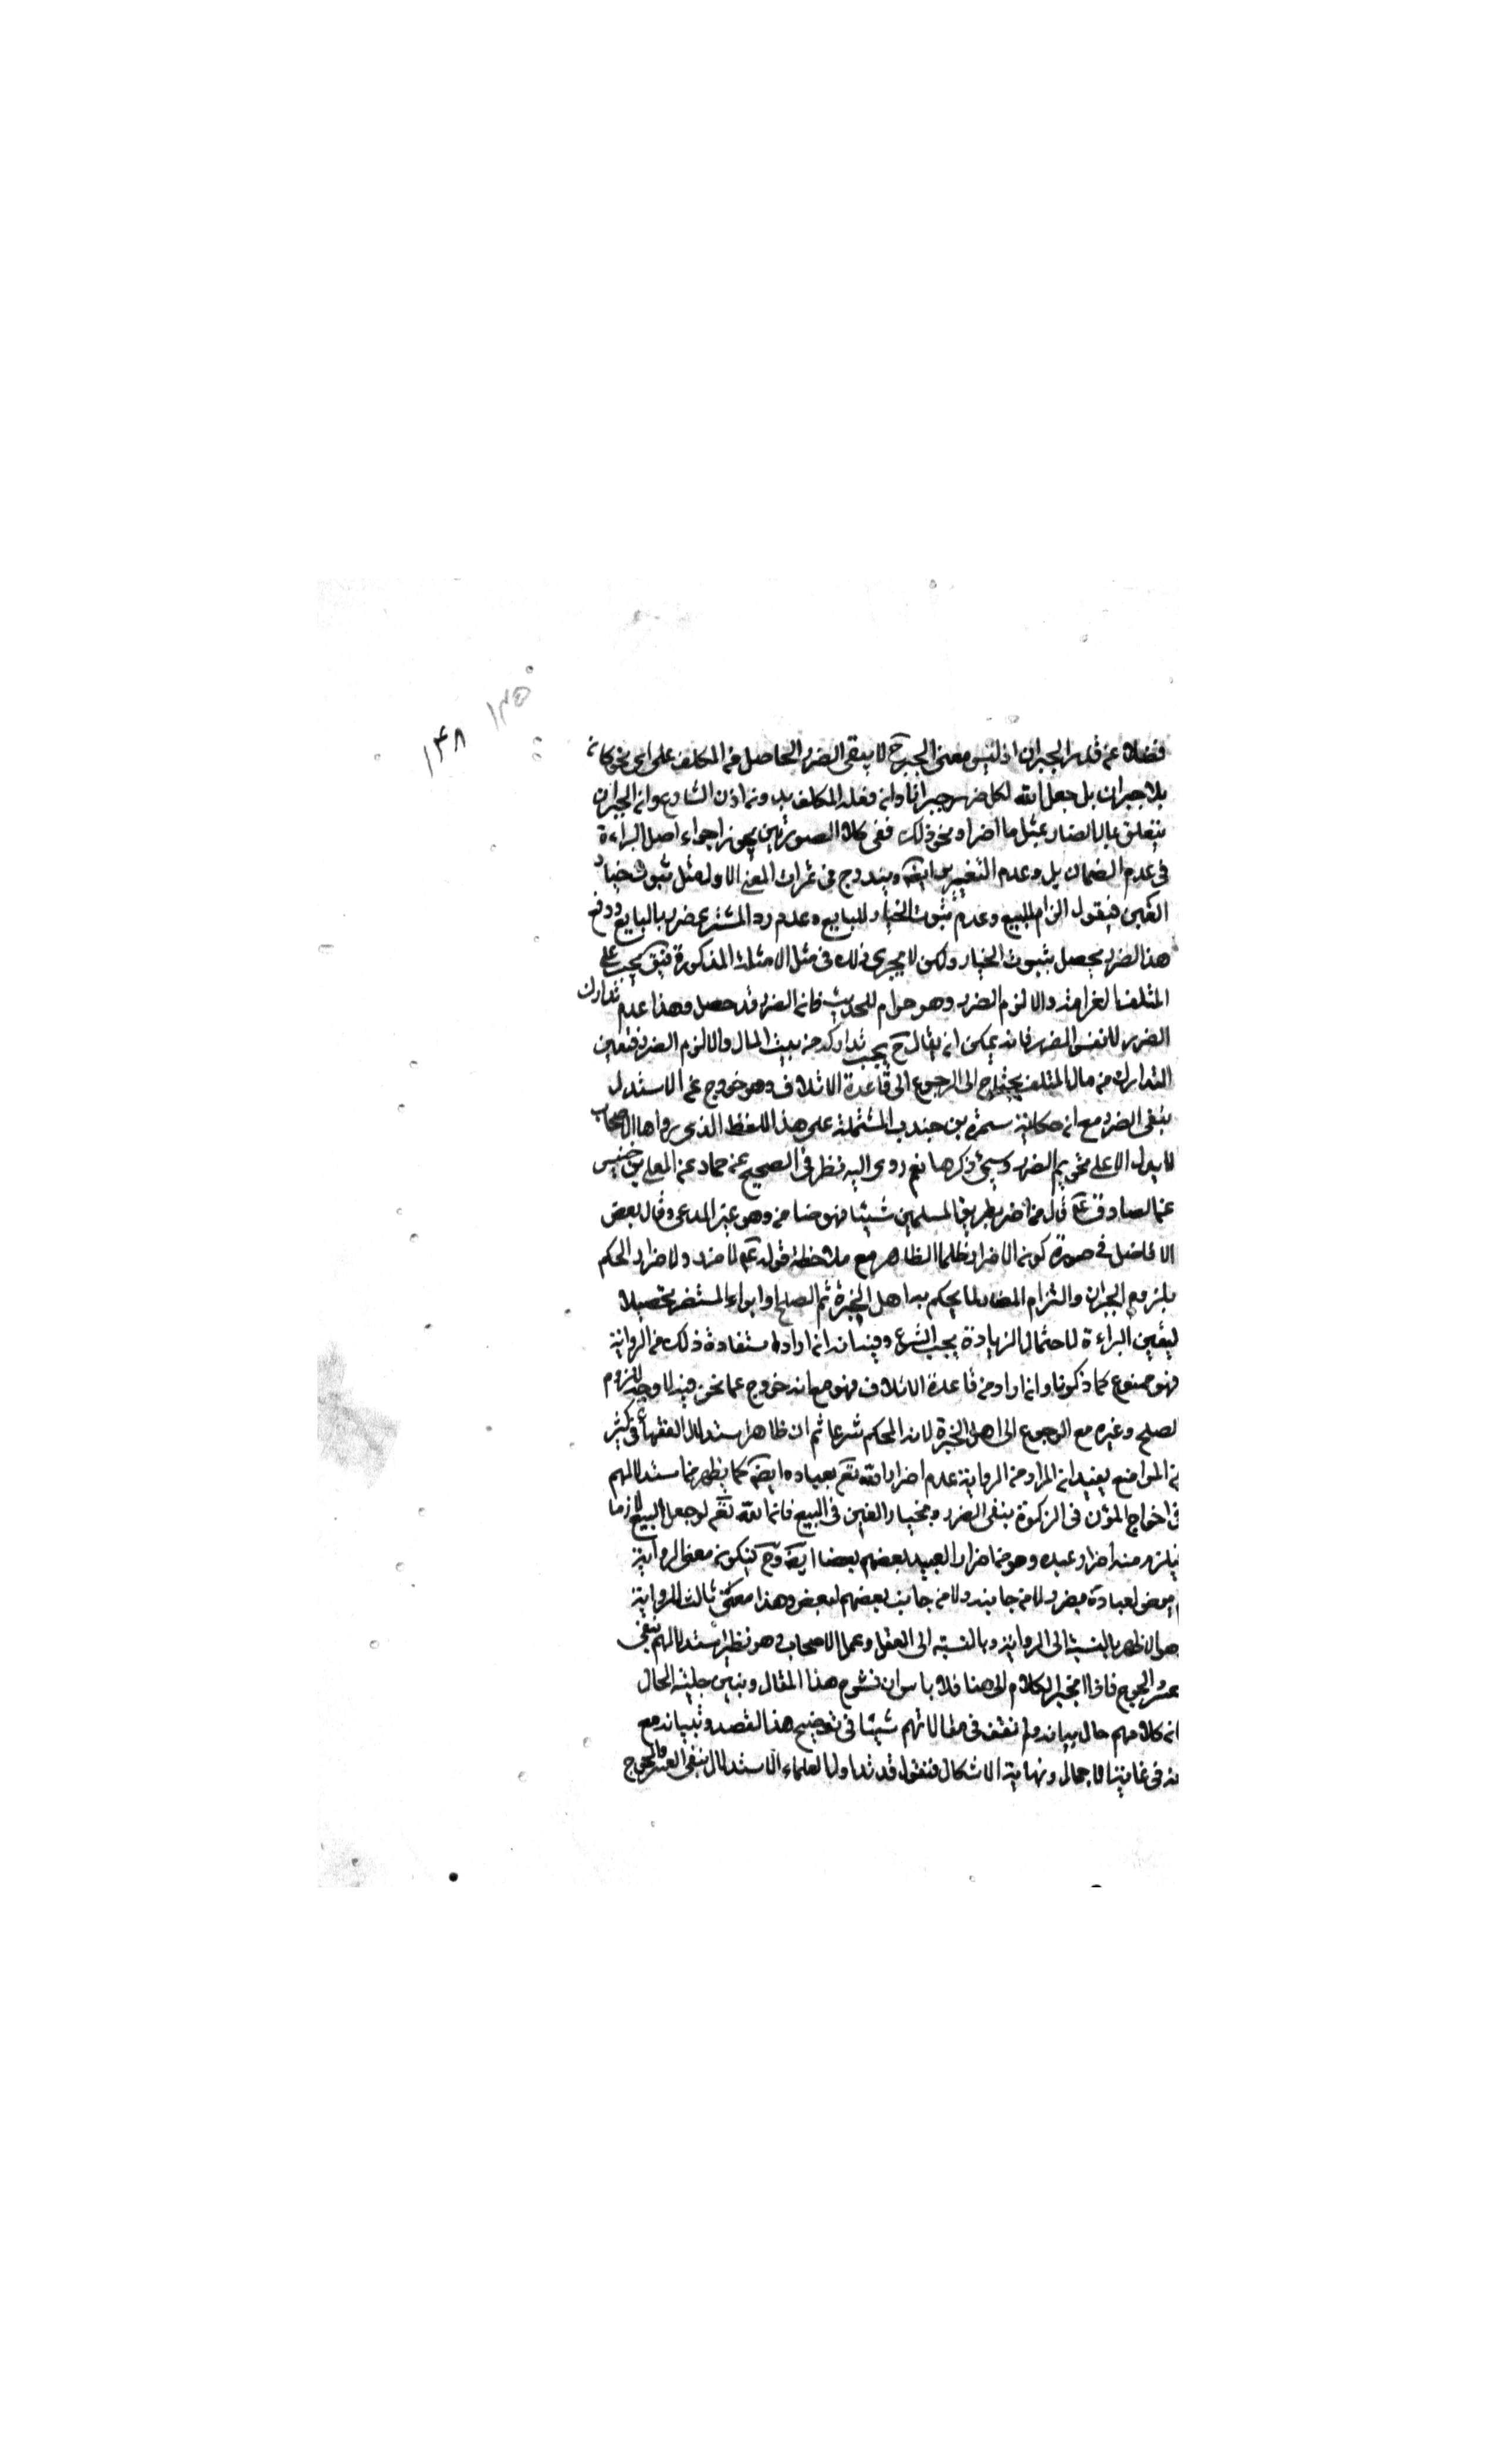 ١٣٥
١٤٨
فضلا عن قدر الجبران اذ ليس معنى الجبر ح لا يبقى الضرر الحاصل من المكلف على اى نحو كان
بلا جبران بل جعل الله لكل ضرر جبرانا وان فعله المكلف بدون اذن الشارع وان الجبران
يتعلق بمال الضار بمثل ما اضر او نحو ذلك ففى كلا الصورتين يجوز اجراء اصل البراءة
فى عدم الضمان بل وعدم التغيير ايضا ويندرج فى ثمرات المعنى الاول مثل ثبوت خيار
الغبن فيقول الزام البيع وعدم ثبوت الخيار للبايع وعدم رد المشترى ضرر بالبايع ودفع
هذا الضرر يحصل بثبوت الخيار ولكن لا يجرى ذلك فى مثل الامثلة المذكورة فيق يجب على
المتلف الغرامة والا لزم الضرر وهو حرام للحديث فان الضرر قد حصل وهذا عدم تدارك
الضرر لا نفس الضرر فانه يمكن ان يقال ح يجب تداركه من بيت المال والا لزم الضرر فتعين
التدارك من مال المتلف يحتاج الى الرجوع الى قاعدة الاتلاف وهو خروج عن الاستدلال
بنفى الضرر مع ان حكاية سمرة بن جندب المشتملة على هذا اللفظ الذى رواها الاصحاب
لا يدل الا على تحريم الضرر وسيجئ ذكرها نعم روى اليه نظر فى الصحيح عن حماد عن المعلى بن خنيس
عن الصادق ع قال من اضر بطريق المسلمين شيئا فهو ضامن وهو غير المدعى وقال بعض
الافاضل فى صورة كون الاضرار ظلما الظاهر مع ملاحظة قوله ع لا ضرر ولا ضرار الحكم
بلزوم الجبران والتزام المضار لما يحكم به اهل الخبرة ثم الصلح او ابراء المستضر تحصيلا
ليقين البراءة لاحتمال الزيادة بحسب الشرع وفيه انه ان اراد استفادة ذلك من الرواية
فهو ممنوع كما ذكرنا وان اراد من قاعدة الاتلاف فهو مع انه خروج عما نحن فيه لا وجه للزوم
لصلح وغيره مع الرجوع الى اهل الخبرة لانه المحكم شرعا ثم ان ظاهر استدلال الفقهاء فى كثير
من المواضع يفيد ان المراد من الرواية عدم اضرار الله تعم بعباده ايضا كما يظهر من استدلالهم
فى اخراج المؤن فى الزكوة بنفى الضرر وبخيار الغبن فى البيع فان الله تعم لو جعل البيع لازما
فيلزم منه اضرار عبده وهو من اضرار العبيد بعضهم بعضا ايضا وح فيكون معنى الرواية
لم يرض لعباده بضرر لا من جانبه ولا من جانب بعضهم لبعض وهذا معنى ثالث للرواية
هو الاظهر بالنسبة الى الرواية وبالنسبة الى العقل وعمل الاصحاب وهو نظير استدلالهم بنفى
عسر والحرج فاذا انجر الكلام الى هنا فلا باس ان نشرح هذا المقال ونبين جلية الحال
انه كلامهم حال بيانه ولم نقف فى مقالاتهم شيئا فى توضيح هذا القصد وتبيانه مع
نه فى غاية الاجمال ونهاية الاشكال فنقول قد تداول العلماء الاستدلال بنفى العسر والحرج